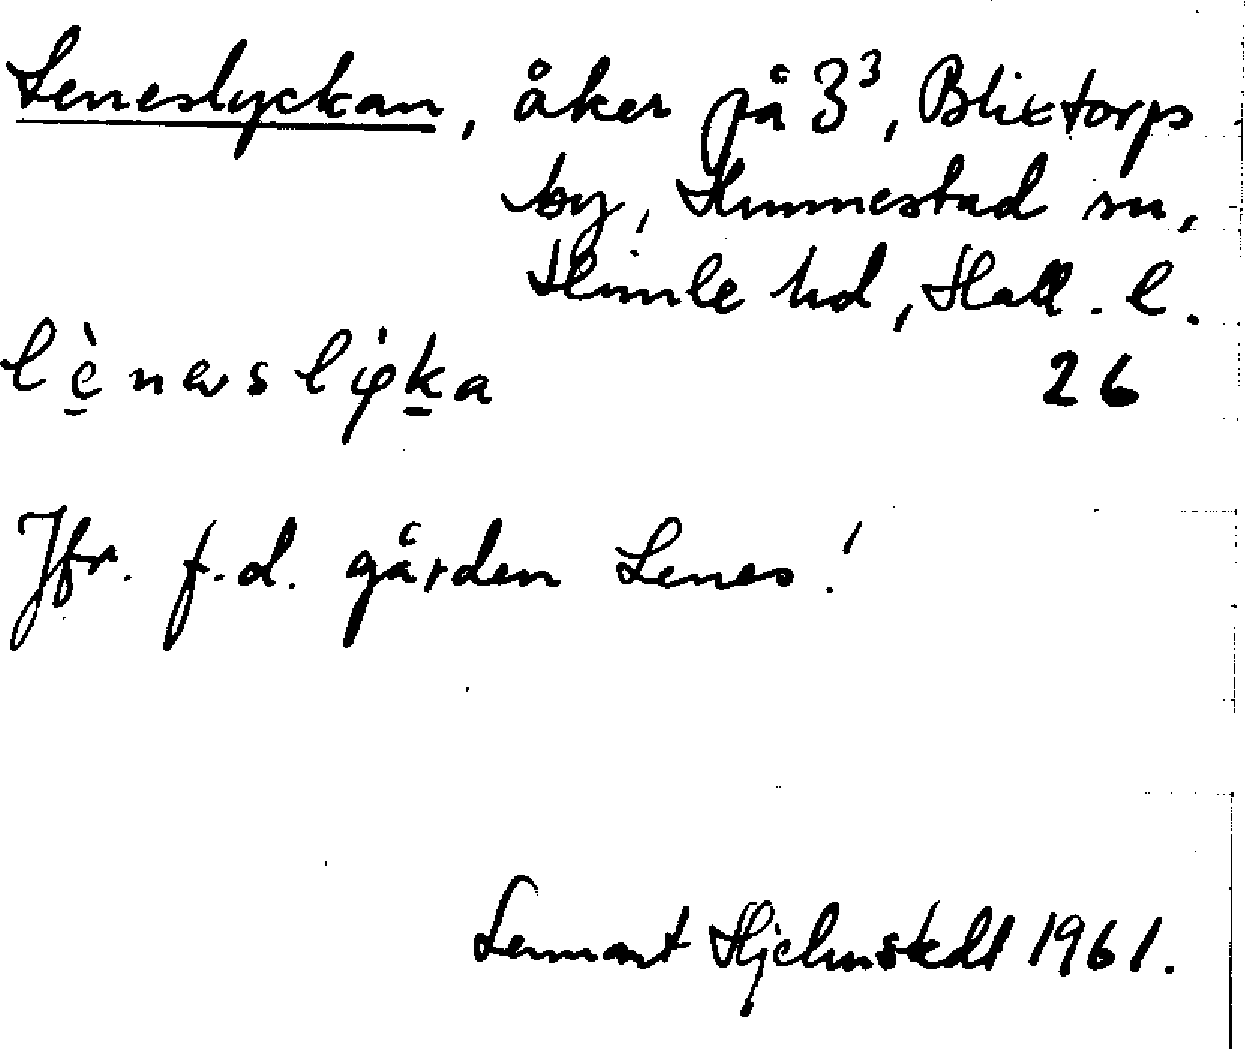 Leneslyckan, åker på 3³, Blixtorps
by, Hunnestad sn,
Himle hd, Hall. l.
26
Jfr. f.d. gården Lenes!
Lennart Hjelmstedt 1961.